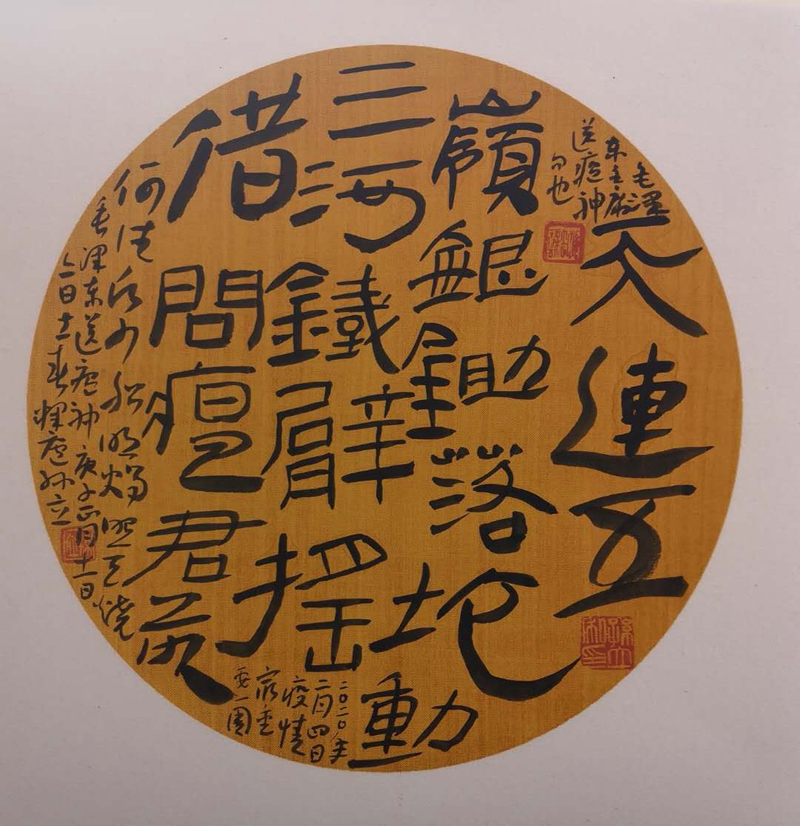 毛澤
东主席
送瘟神
句也
天連五
嶺銀鋤落地
動
三河鐵臂搖
借問瘟君欲
何往纸船明燭照天燒
毛澤东送瘟神庚子正月十一日
二〇二〇年
二月四日
疫情